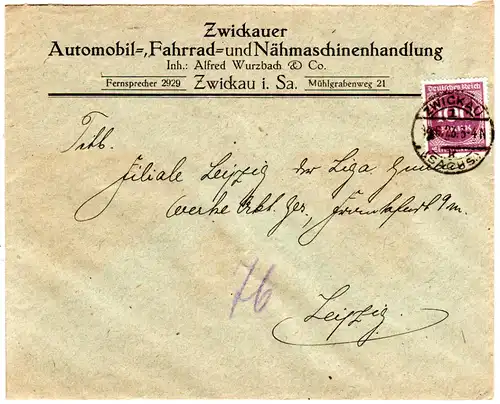 Zwickauer
Automobil-, Fahrrad- und Nähmaschinenhandlung
Inh.: Alfred Wurzbach & Co.
Fernsprecher 2929 Zwickau i. Sa. Mühlgrabenweg 21
Deutsches Reich
ZWICKAU
Titl.
Filiale Leipzig der Liga Gummi
werke Akt. Ges., Frankfurt a/m.
76
Leipzig.